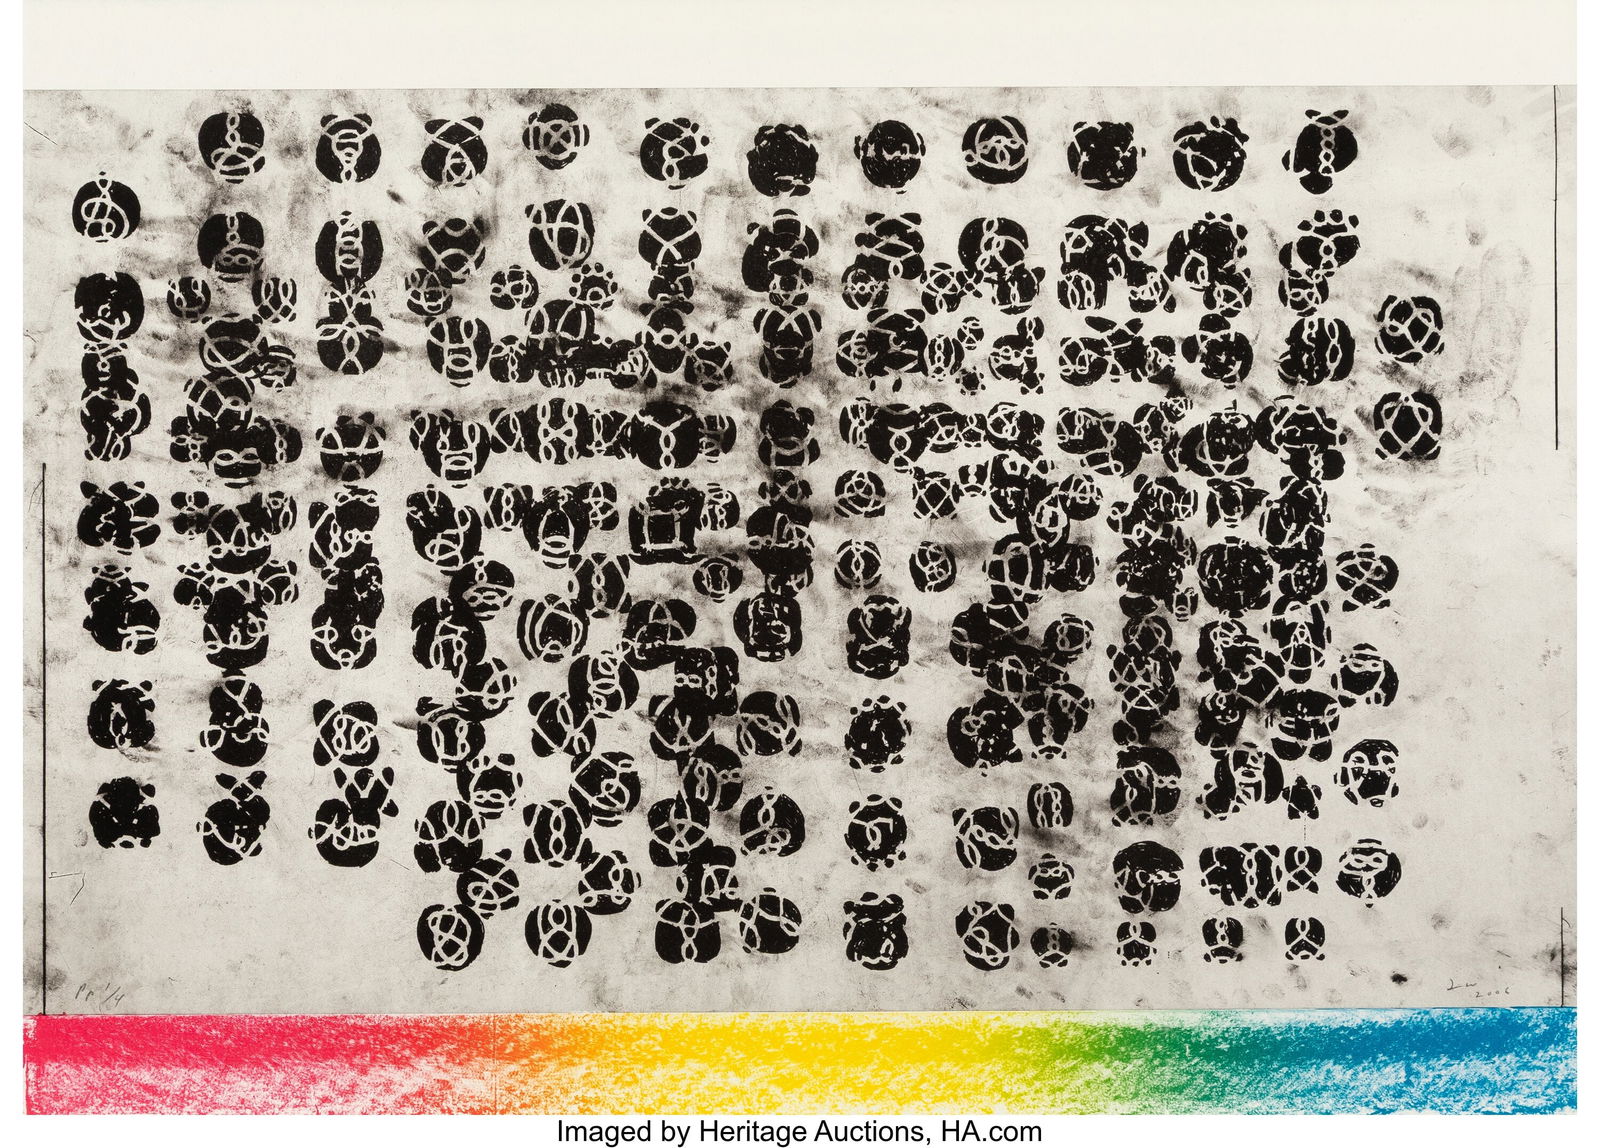 PP 1/4
2006
Imaged by Heritage Auctions, HA.com